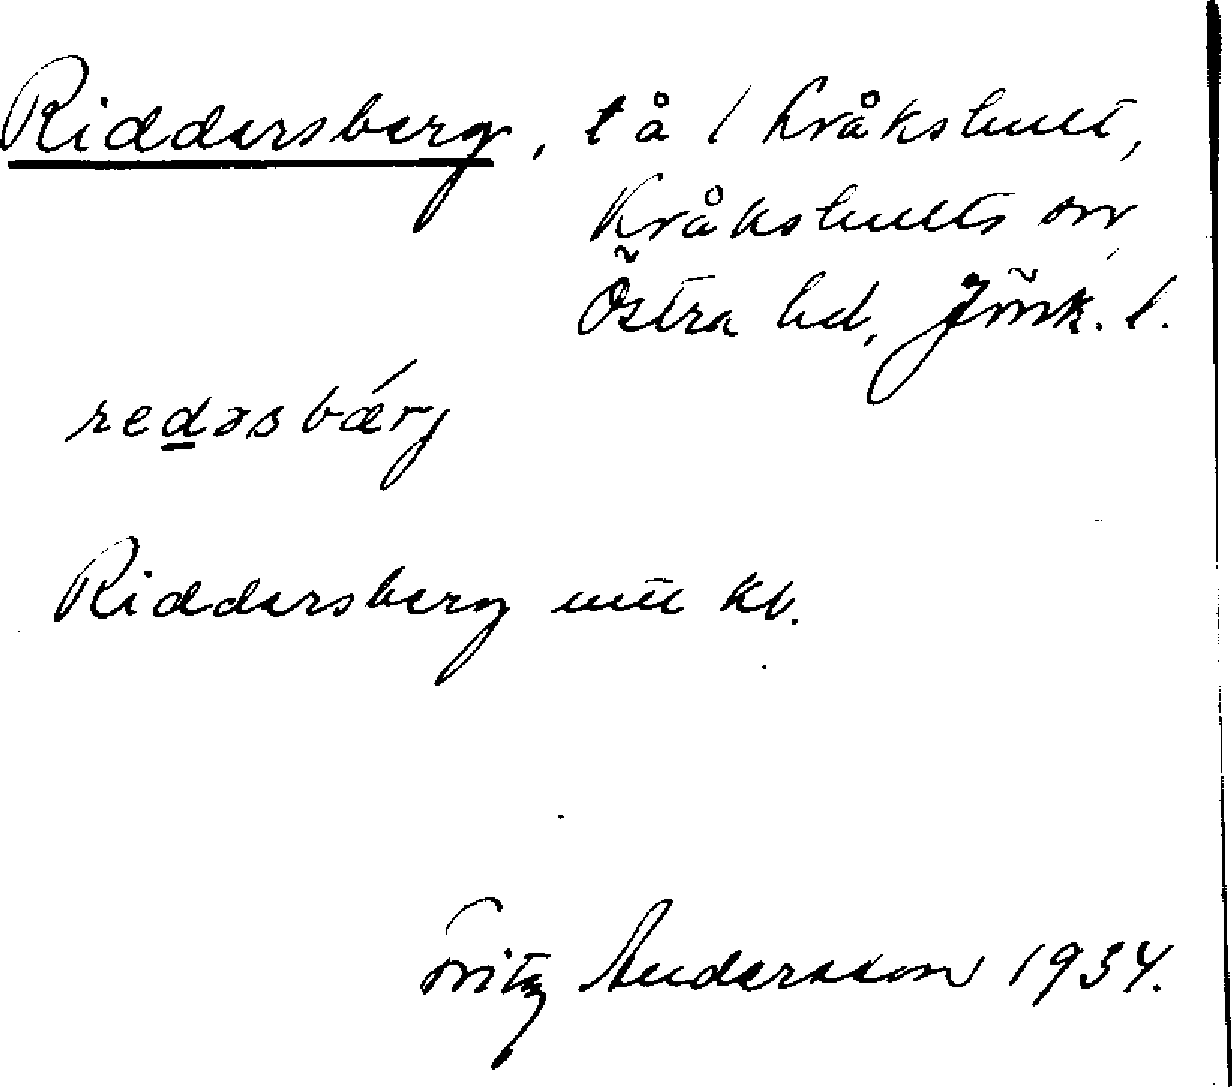 Riddersberg, t å 1 Kråkshult,
Kråkshults sn,
Östra hd, Jönk. l.
redəsbærj
Riddersberg utt kb.
Fritz Andersson 1934.